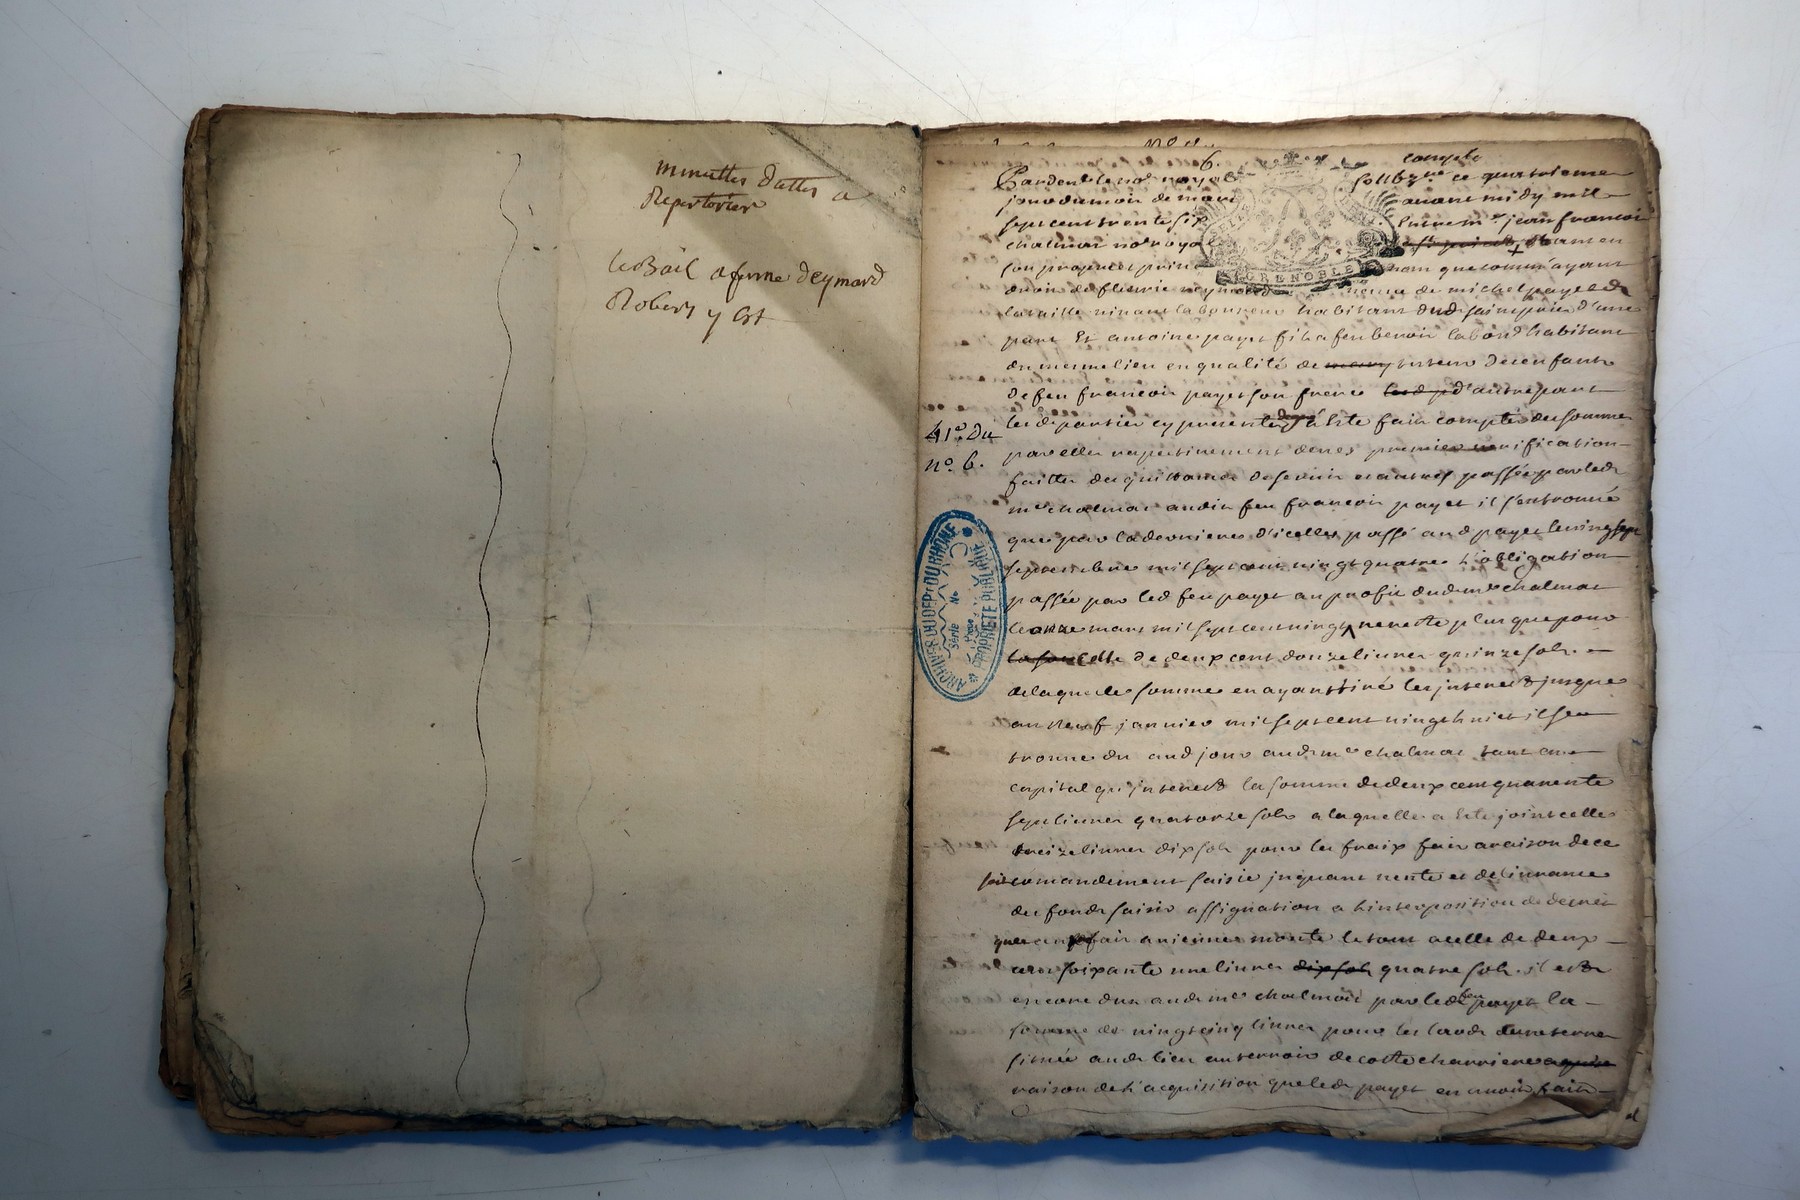 minuttes dattes a
Repertorier
le Bail a ferme deymard
Robert y Est
6.
compte
Pardevt le nore royal sousigné ce quatrieme
jour du mois de mars avant midy mil
sept cent trente six Entre mre jean francois
chalmas nore royal
son propre et privé nom que comme ayant
droit de fleurie veuve de michel payet
habitant dud d'une
part Et antoine payet fils a feu benoit labour habitant
du meme lieu en qualité de tuteur des enfants
de feu francois payet son frere d'autre part
les d parties cy presentes fait compte des sommes
par elles respectivement verification
faitte des quittances passées par led
mre chalmas aud feu francois payet il s'est trouvé
que par la derniere d'icelles passé aud payet le vingt sept
septembre mil sept cent vingt quatre l'obligation
passée par led feu payet au profit dud mre chalmas
le mars mil sept cent vingt ne reste plus que pour
celle de deux cent douze livres quinze sols
de laquelle somme en ayant tiré les interets jusque
au neuf janvier mil sept cent vingt huict il s'en
trouve du aud jour aud mre chalmas tant en
capital qu'interets la somme de deux cent quarente
sept livres quatorze sols a laquelle a esté joint celle
treize livres dix sols pour les fraix fait a raison de ce
comandement saisie inquant vente et delivrance
des fonds saisis assignation a l'interposition de decret
monte le tout a celle de deux
cent soixante une livres dix sols quatre sols il est
encore du aud mre chalmas par led feu payet la
somme de vingt cinq livres pour les laods
située aud lieu au terroir de cotte charriere
raison de l'acquisition que led payet en avoit fait
41e du
no 6.
ARCHIVES DU DEPT DU RHONE
Série No
PROPRIÉTÉ PUBLIQUE
GRENOBLE